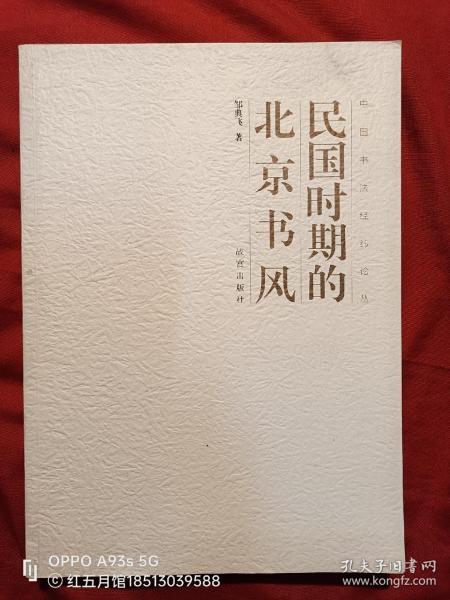 中国书法经纬论丛
民国时期的
北京书风
邹典飞 著
故宫出版社
OPPO A93s 5G
© 红五月馆18513039588
孔夫子旧书网
www.kongfz.com